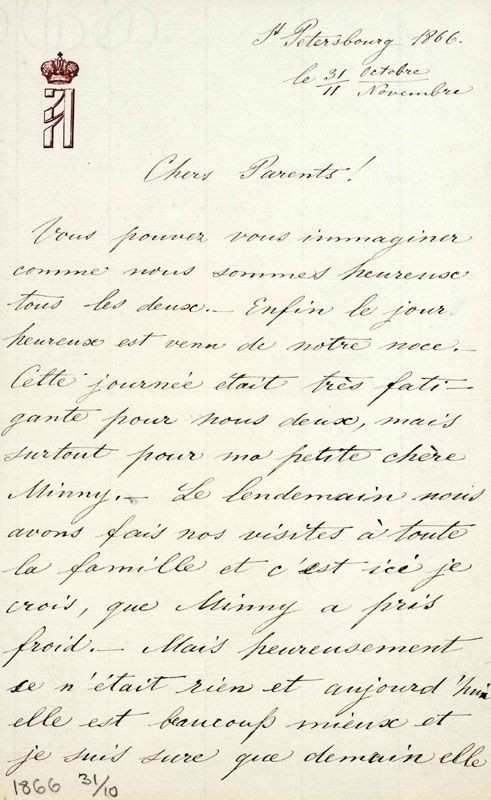 St Petersbourg 1866.
le 31/11 Octobre/Novembre
Chers Parents!
Vous pouvez vous immaginer
comme nous sommes heureux
tous les deux. — Enfin le jour
heureux est venu de notre noce. —
Cette journée était très fati-
gante pour nous deux, mais
surtout pour ma petite chère
Minny. — Le lendemain nous
avons fais nos visites à toute
la famille et c'est ici je
crois, que Minny a pris
froid. — Mais heureusement
ce n'était rien et aujourd'hui
elle est beaucoup mieux et
je suis sure que demain elle
1866 31/10